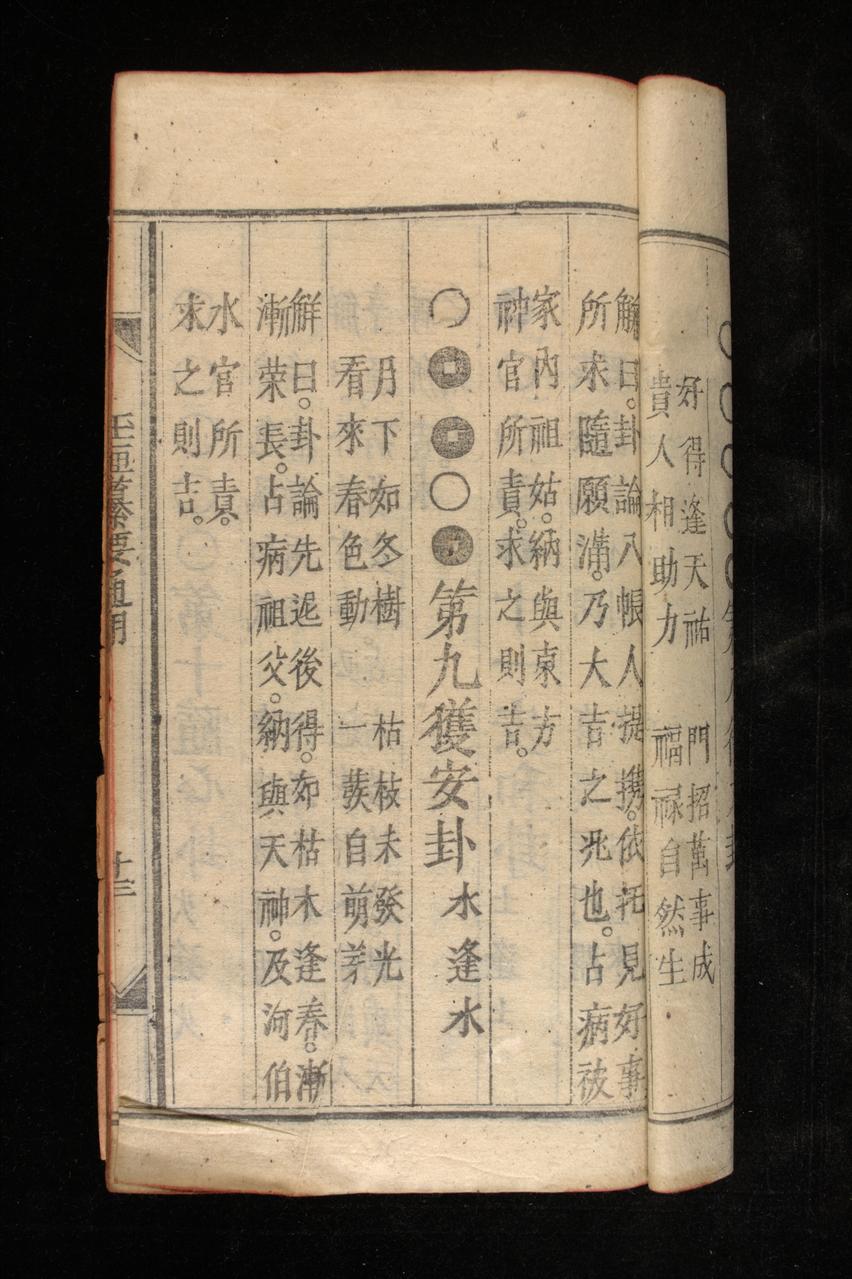 好得逢天祐　門招萬事成
貴人相助力　福祿自然生
解曰。卦論人帳人提携。依托見好事
所求隨願滿。乃大吉之兆也。占病被
家內祖姑。納與東方
神官所責。求之則吉。
第九獲安卦　水逢水
月下如冬樹　枯枝未發光
看來春色動　一蕟自萌芽
觧曰。卦論先迍後得。如枯木逢春。漸
漸荣長。占病祖父。納與天神。及河伯
水官所責。
求之則吉。
纂要通
十三